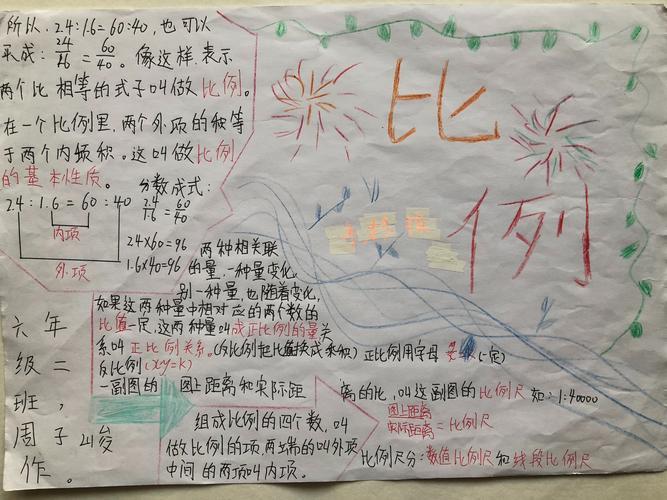 所以, 2.4:1.6=60:40, 也可以
写成: 24/16=60/40。像这样, 表示
两个比 相等的式子叫做比例。
在一个比例里, 两个外项的积等
于两个内项积。这叫做比例
的基本性质。
分数成式:
2.4:1.6=60:40
24/16=60/40
内项
外项
24×60=96
1.6×40=96
比
例
两种相关联
的量,一种量变化,
别一种量,也随着变化,
如果这两种量中相对应的两个数的
比值一定,这两种量叫成正比例的量关
系叫正比例关系。(反比例把比值换成乘积)
正比例用字母
(一定)
反比例(xy=k)
一副图的
图上距离和实际距
离的比,叫这副图的比例尺 如:1:40000
图上距离/实际距离=比例尺
组成比例的四个数,叫
做比例的项,两端的叫外项
中间的两项叫内项。
比例尺分:数值比例尺和线段比例尺
六年
级二
班,
周子
作。